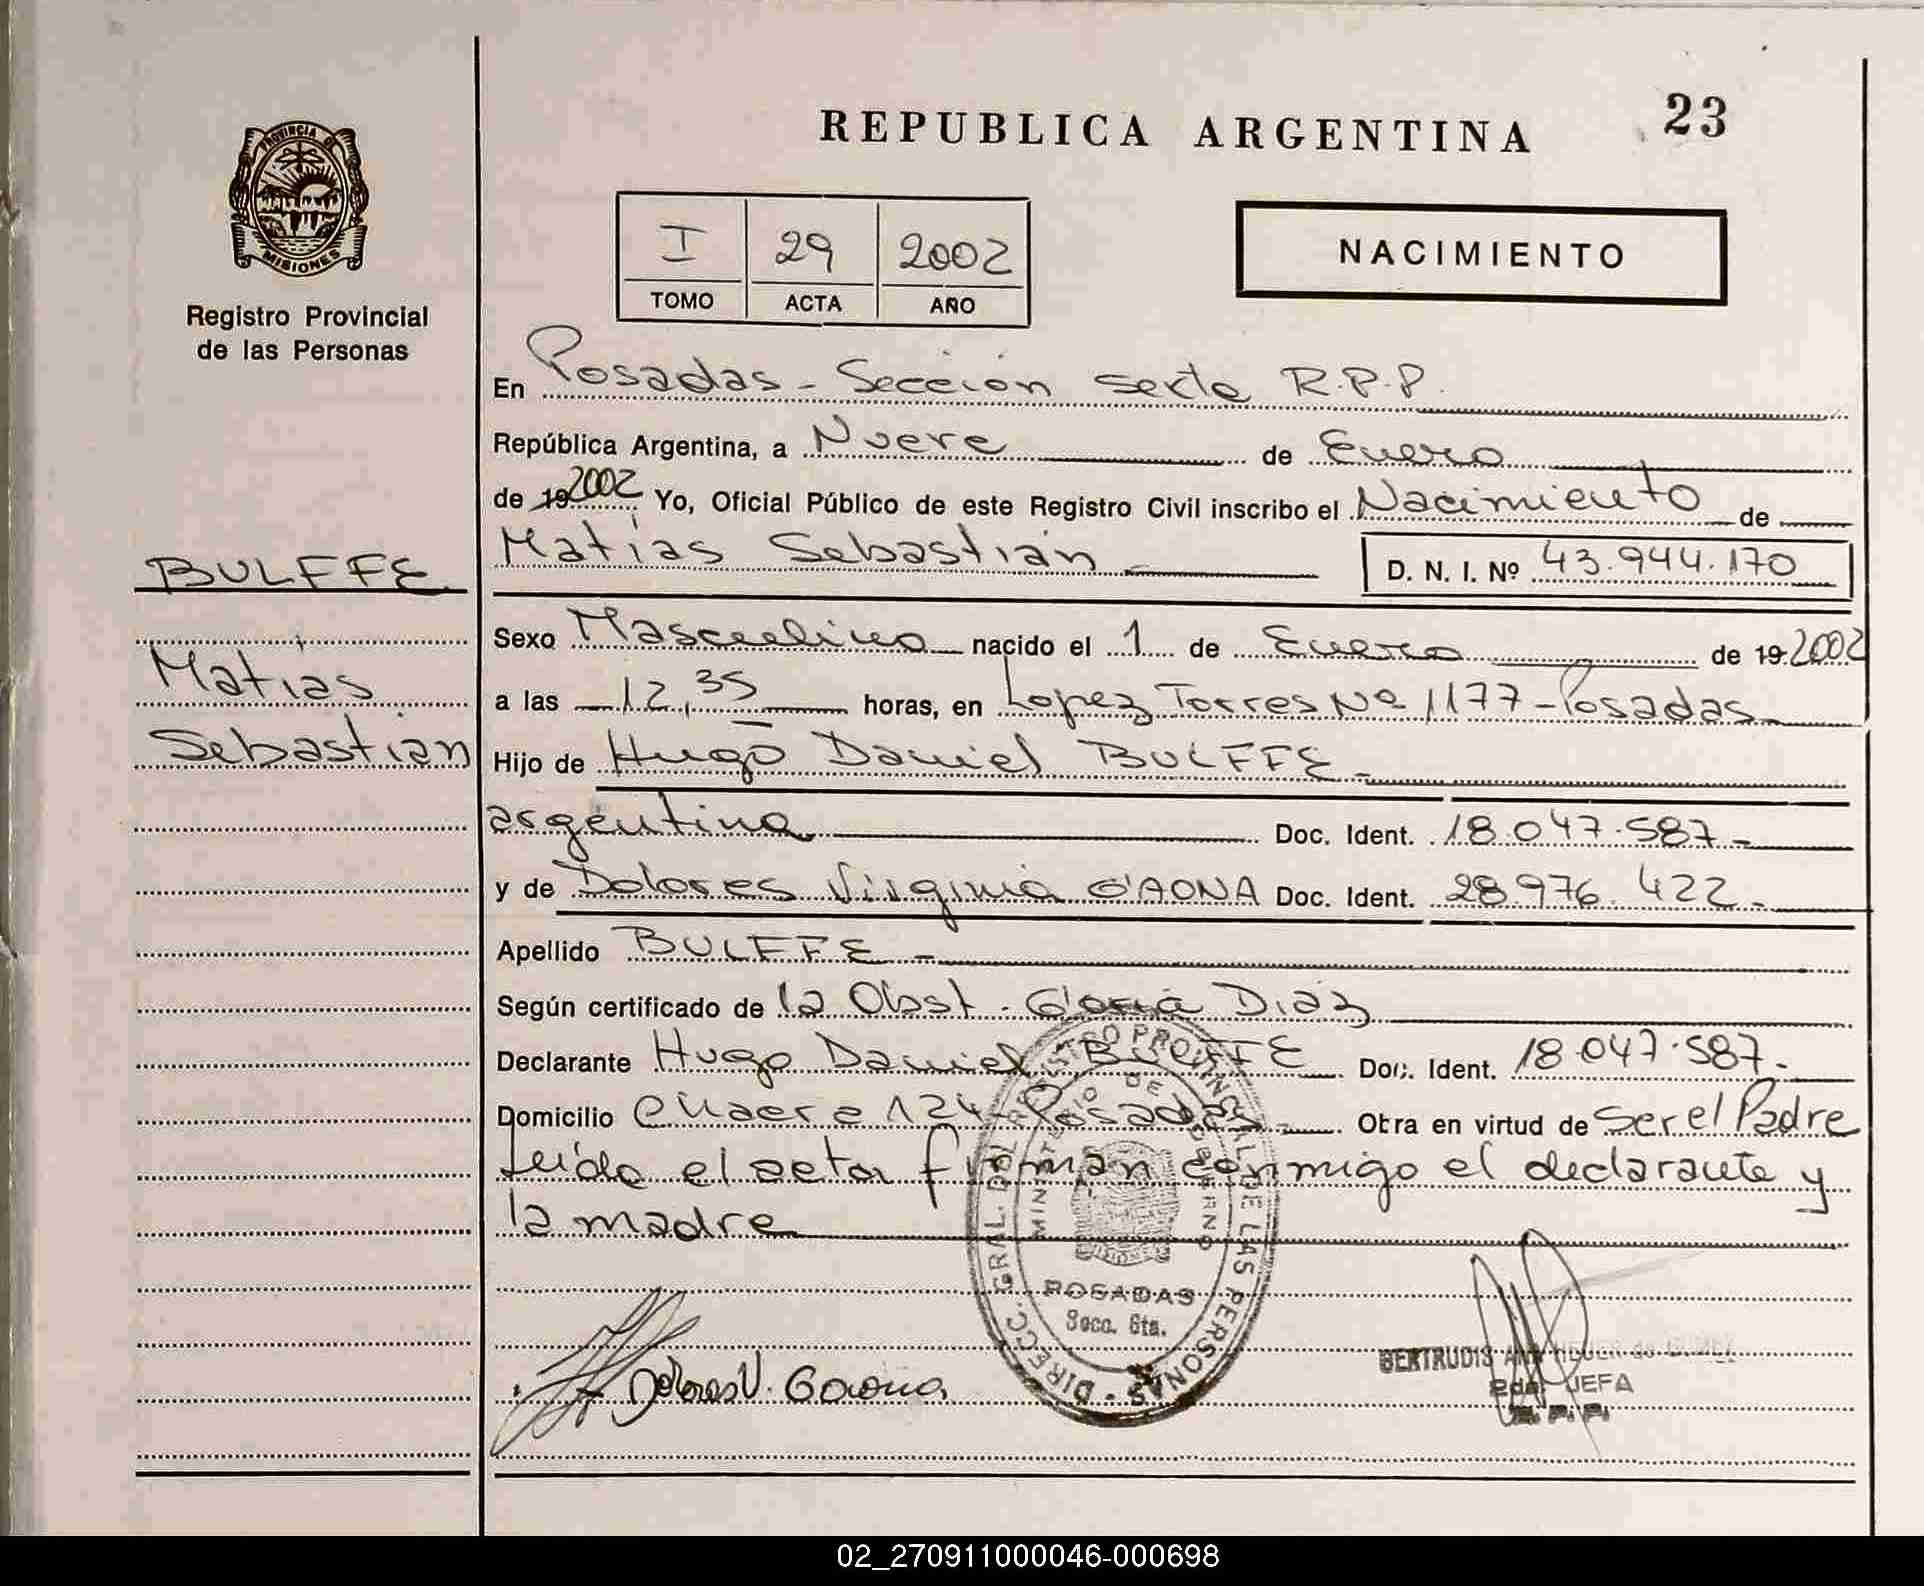 REPUBLICA ARGENTINA
23
PROVINCIA DE
MISIONES
Registro Provincial
de las Personas
I 29 2002
TOMO ACTA AÑO
NACIMIENTO
En Posadas - Sección sexta R.P.P.
República Argentina, a Nueve de Enero
de 19 2002 Yo, Oficial Público de este Registro Civil inscribo el Nacimiento de
Matías Sebastián D. N. I. Nº 43.944.170
BULFFE
Matías
Sebastián
Sexo Masculino nacido el 1 de Enero de 19 2002
a las 12,35 horas, en Lopez Torres Nº 1177 - Posadas
Hijo de Hugo Daniel BULFFE
argentina Doc. Ident. 18.047.587-
y de Dolores Virginia GAONA Doc. Ident. 28.976.422-
Apellido BULFFE -
Según certificado de la Obst. Gloria Diaz
Declarante Hugo Daniel BULFFE Doc. Ident. 18.047.587-
Domicilio 124 - Posadas - Obra en virtud de ser el Padre
Leída el acta firman conmigo el declarante y
la madre
DIRECC. GRAL. DEL REGISTRO PROVINCIAL DE LAS PERSONAS
MINISTERIO DE GOBIERNO
POSADAS
Secc. 6ta.
Dolores V. Gaona
GERTRUDIS
2da. JEFA
R. P. P.
02_270911000046-000698